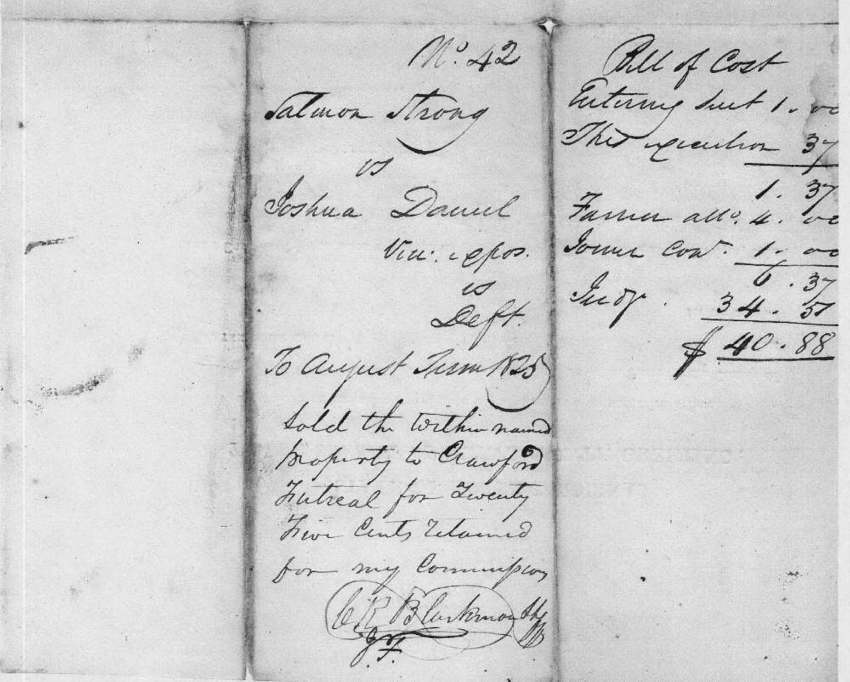 No. 42
Salmon Strong
vs
Joshua Daniel
Ven: expos.
vs
Deft.
To August Term 1825
Sold the within named
property to Crawford
Futreal for Twenty
Five Cents retained
for my Commission
C R Blackmon Shff
Bill of Cost
Entering suit 1.00
This execution 37
1.37
Former atto. 4.00
Former Cost. 1.00
6.37
Judgt. 34.51
$ 40.88